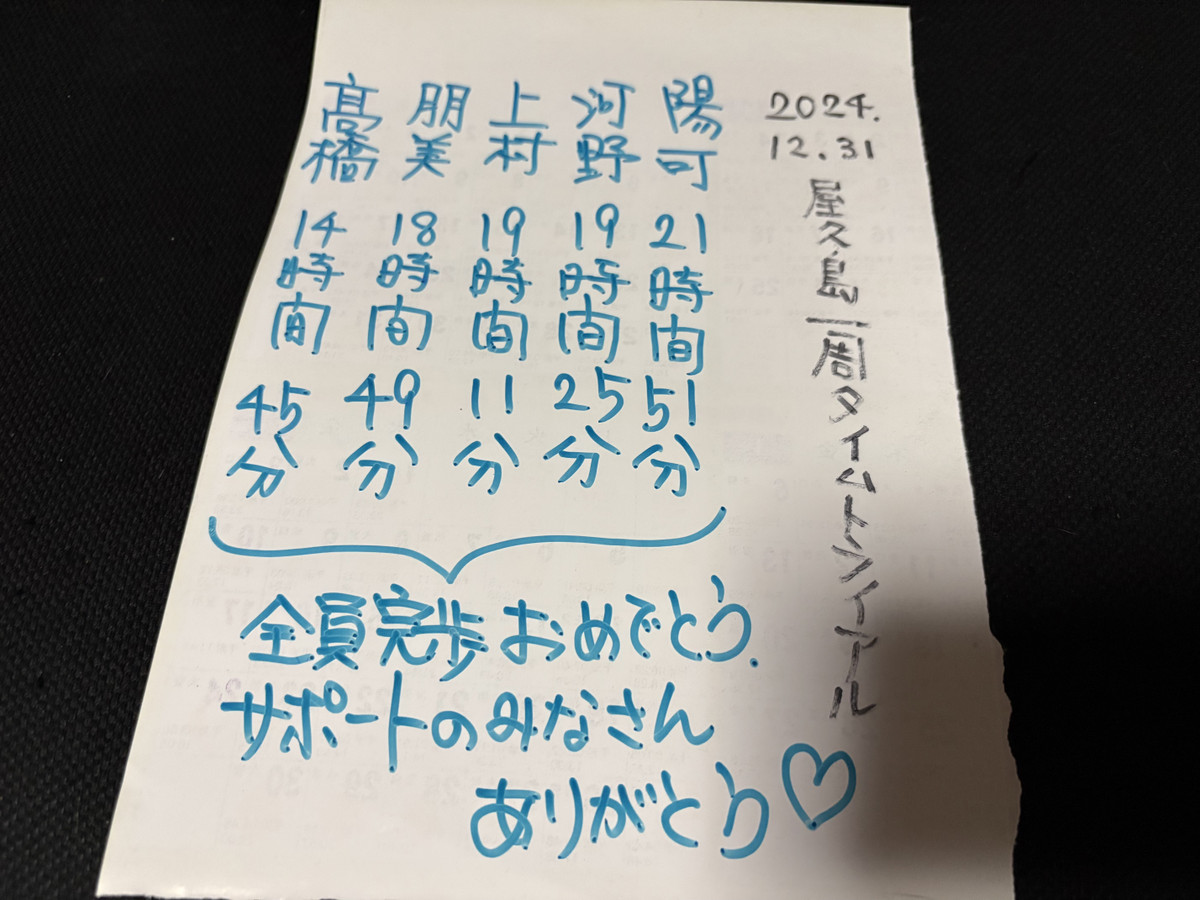 2024.
12.31
屋久島一周タイムトライアル
陽可 21時間51分
河野 19時間25分
上村 19時間11分
朋美 18時間49分
髙橋 14時間45分
全員完歩おめでとう.
サポートのみなさん
ありがとう♡